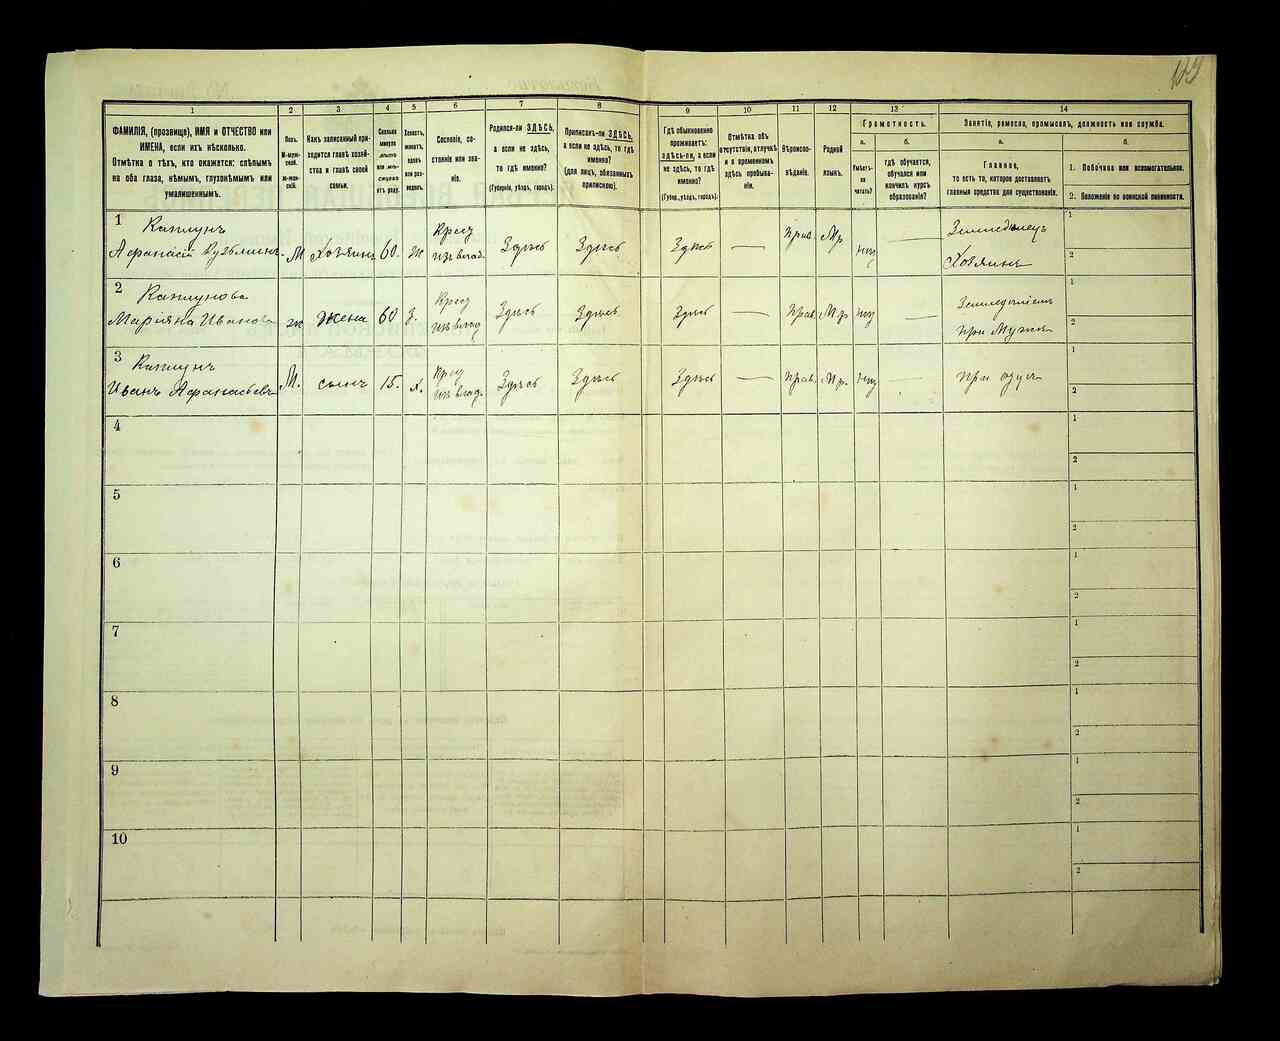 1
2
3
4
5
6
7
8
9
10
11
12
13
14
ФАМИЛІЯ, (прозвище), ИМЯ и ОТЧЕСТВО или
ИМЕНА, если ихъ нѣсколько.
Отмѣтка о тѣхъ, кто окажется: слѣпымъ
на оба глаза, нѣмымъ, глухонѣмымъ или
умалишеннымъ.
Полъ.
М-мужской.
ж-женскій.
Какъ записанный приходится главѣ хозяйства и главѣ своей
семьи.
Сколько
минуло
лѣтъ
или мѣсяцевъ
отъ роду.
Холостъ,
женатъ,
вдовъ
или разведенъ.
Сословіе, состояніе или званіе.
Родился-ли ЗДѢСЬ,
а если не здѣсь,
то гдѣ именно?
(Губернія, уѣздъ, городъ).
Приписанъ-ли ЗДѢСЬ,
а если не здѣсь, то гдѣ
именно?
(для лицъ, обязанныхъ
припискою).
Гдѣ обыкновенно
проживаетъ:
здѣсь-ли, а если
не здѣсь, то гдѣ
именно?
(Губер., уѣздъ, городъ).
Отмѣтка объ
отсутствіи, отлучкѣ
и о временномъ
здѣсь пребываніи.
Вѣроисповѣданіе.
Родной
языкъ.
Грамотность.
а.
б.
Умѣетъ-ли
читать?
гдѣ обучается,
обучался или
кончилъ курсъ
образованія?
Занятіе, ремесло, промыселъ, должность или служба.
а.
б.
Главное,
то есть то, которое доставляетъ
главныя средства для существованія.
1. Побочное или вспомогательное.
2. Положеніе по воинской повинности.
1
Каплунъ
Афанасій Кузьминъ. М Хозяинъ 60. ж Крест изъ влад. Здѣсь Здѣсь Здѣсь — Прав. Мр нѣт — Земледѣлецъ
Хозяинъ
1
2
2
Каплунова
Маріяна Иванова ж жена 60 з. Крест изъ влад Здѣсь Здѣсь Здѣсь — Прав. Мр нѣт — Земледѣліемъ
при Мужѣ
1
2
3
Каплунъ
Иванъ Афанасьевъ М. сынъ 15. х. Крест изъ влад. Здѣсь Здѣсь Здѣсь — Прав. Мр. нѣт — при отцѣ
1
2
4
1
2
5
1
2
6
1
2
7
1
2
8
1
2
9
1
2
10
1
2